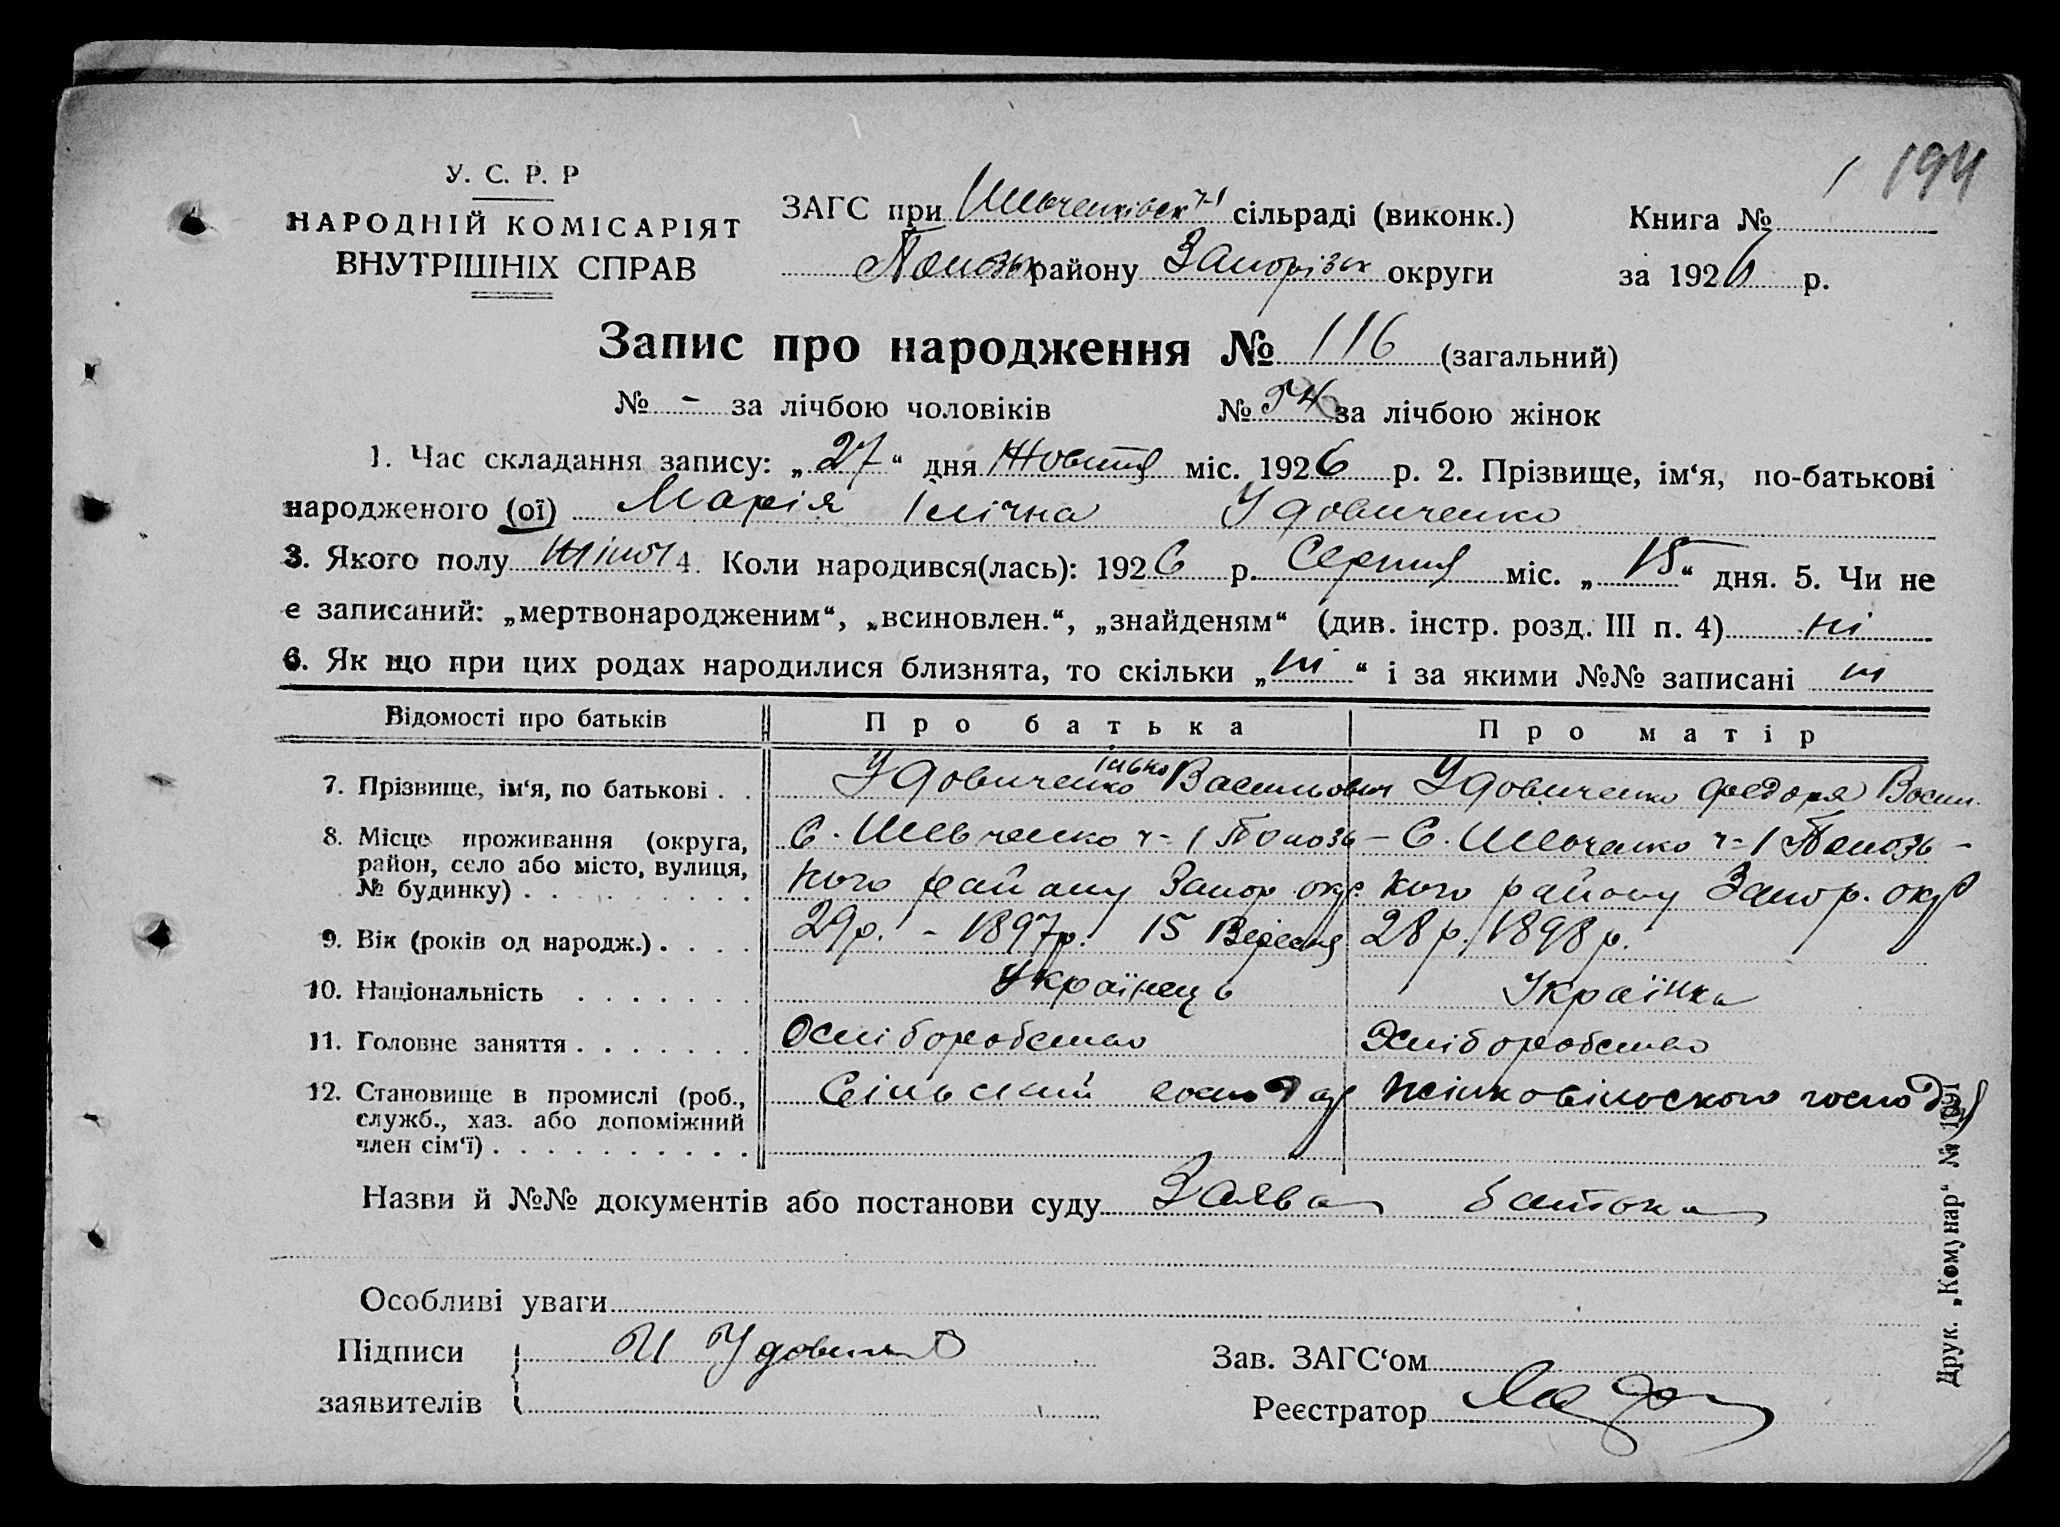 194
У. С. Р. Р
НАРОДНІЙ КОМІСАРІЯТ
ВНУТРІШНІХ СПРАВ
ЗАГС при Шевченківськ ч-1 сільраді (виконк.)
району Запорізьк округи
Книга № 1
за 1926 р.
Запис про народження № 116 (загальний)
№ - за лічбою чоловіків № 54 за лічбою жінок
1. Час складання запису: „27“ дня Жовтня міс. 1926 р. 2. Прізвище, ім‘я, по-батькові
народженого (ої) Марія Ілічна Удовиченко
3. Якого полу жіноч 4. Коли народився(лась): 1926 р. Серпня міс. „15“ дня. 5. Чи не
є записаний: „мертвонародженим“, „всиновлен.“, „знайденям“ (див. інстр. розд. III п. 4) ні
6. Як що при цих родах народилися близнята, то скільки „ні“ і за якими №№ записані ні
Відомості про батьків Про батька Про матір
7. Прізвище, ім‘я, по батькові . . Удовиченко Ілько Васильович Удовиченко Федора Васил.
8. Місце проживання (округа, район, село або місто, вулиця, № будинку) . . . . . . . . . С. Шевченко ч-1
кого району Запор. окр С. Шевченко ч-1
кого району Запор. окр
9. Вік (років од народж.) . . . . 29р. - 1897р. 15 Вересня 28 р. 1898 р.
10. Національність . . . . . . . Українець Українка
11. Головне заняття . . . . . . . хліборобство хліборобство
12. Становище в промислі (роб., служб., хаз. або допоміжний член сім‘ї) . . . . . . . . . . Сільський господар жінка сільського господар
Назви й №№ документів або постанови суду Заява батька
Особливі уваги
Підписи
заявителів И Удовиченко
Зав. ЗАГС‘ом
Реєстратор
Друк. „Комунар“ №